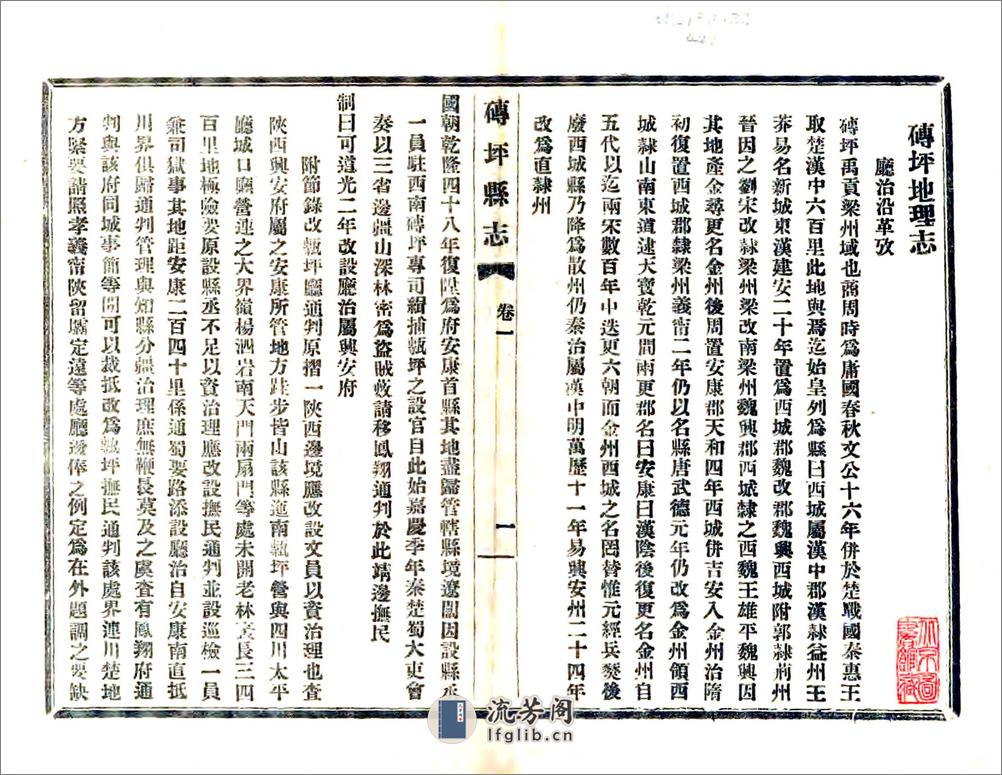 磚坪地理志
廳治沿革攷
磚坪禹貢梁州域也商周時爲庸國春秋文公十六年併於楚戰國秦惠王
取楚漢中六百里此地與焉迄始皇列爲縣曰西城屬漢中郡漢隸益州王
莽易名新城東漢建安二十年置爲西城郡魏改郡魏興西城附郭隸荊州
晉因之劉宋改隸梁州梁改南梁州魏興郡西城隸之西魏王雄平魏興因
其地產金尋更名金州後周置安康郡天和四年西城併吉安入金州治隋
初復置西城郡隸梁州義甯二年仍以名縣唐武德元年仍改爲金州領西
城隸山南東道逮天寶乾元間兩更郡名曰安康曰漢陰後復更名金州自
五代以迄兩宋數百年中迭更六朝而金州西城之名罔替惟元經兵燹後
廢西城縣乃降爲散州仍秦治屬漢中明萬歷十一年易興安州二十四年
改爲直隸州
磚坪縣志
卷一
一
國朝乾隆四十八年復陞爲府安康首縣其地盡歸管轄縣境遼闊因設縣丞
一員駐西南磚坪專司緝捕甎坪之設官自此始嘉慶季年秦楚蜀大吏會
奏以三省邊疆山深林密爲盜賊收請移鳳翔通判於此靖邊撫民
制曰可道光二年改設廳治屬興安府
附節錄改甎坪廳通判原摺一陝西邊境應改設文員以資治理也査
陝西興安府屬之安康所管地方跬步皆山該縣迤南甎坪營與四川太平
廳城口廳營連之大界嶺楊泗岩南天門兩扇門等處未開老林袤長三四
百里地極險要原設縣丞不足以資治理應改設撫民通判並設巡檢一員
兼司獄事其地距安康二百四十里係通蜀要路添設廳治自安康南直抵
川界俱歸通判管理與知縣分疆治理庶無鞭長莫及之虞査有鳳翔府通
判與該府同城事簡等閒可以裁抵改爲甎坪撫民通判該處界連川楚地
方緊要請照孝義甯陝留壩定遠等處廳邊俸之例定爲在外題調之要缺
流芳阁
lfglib.cn